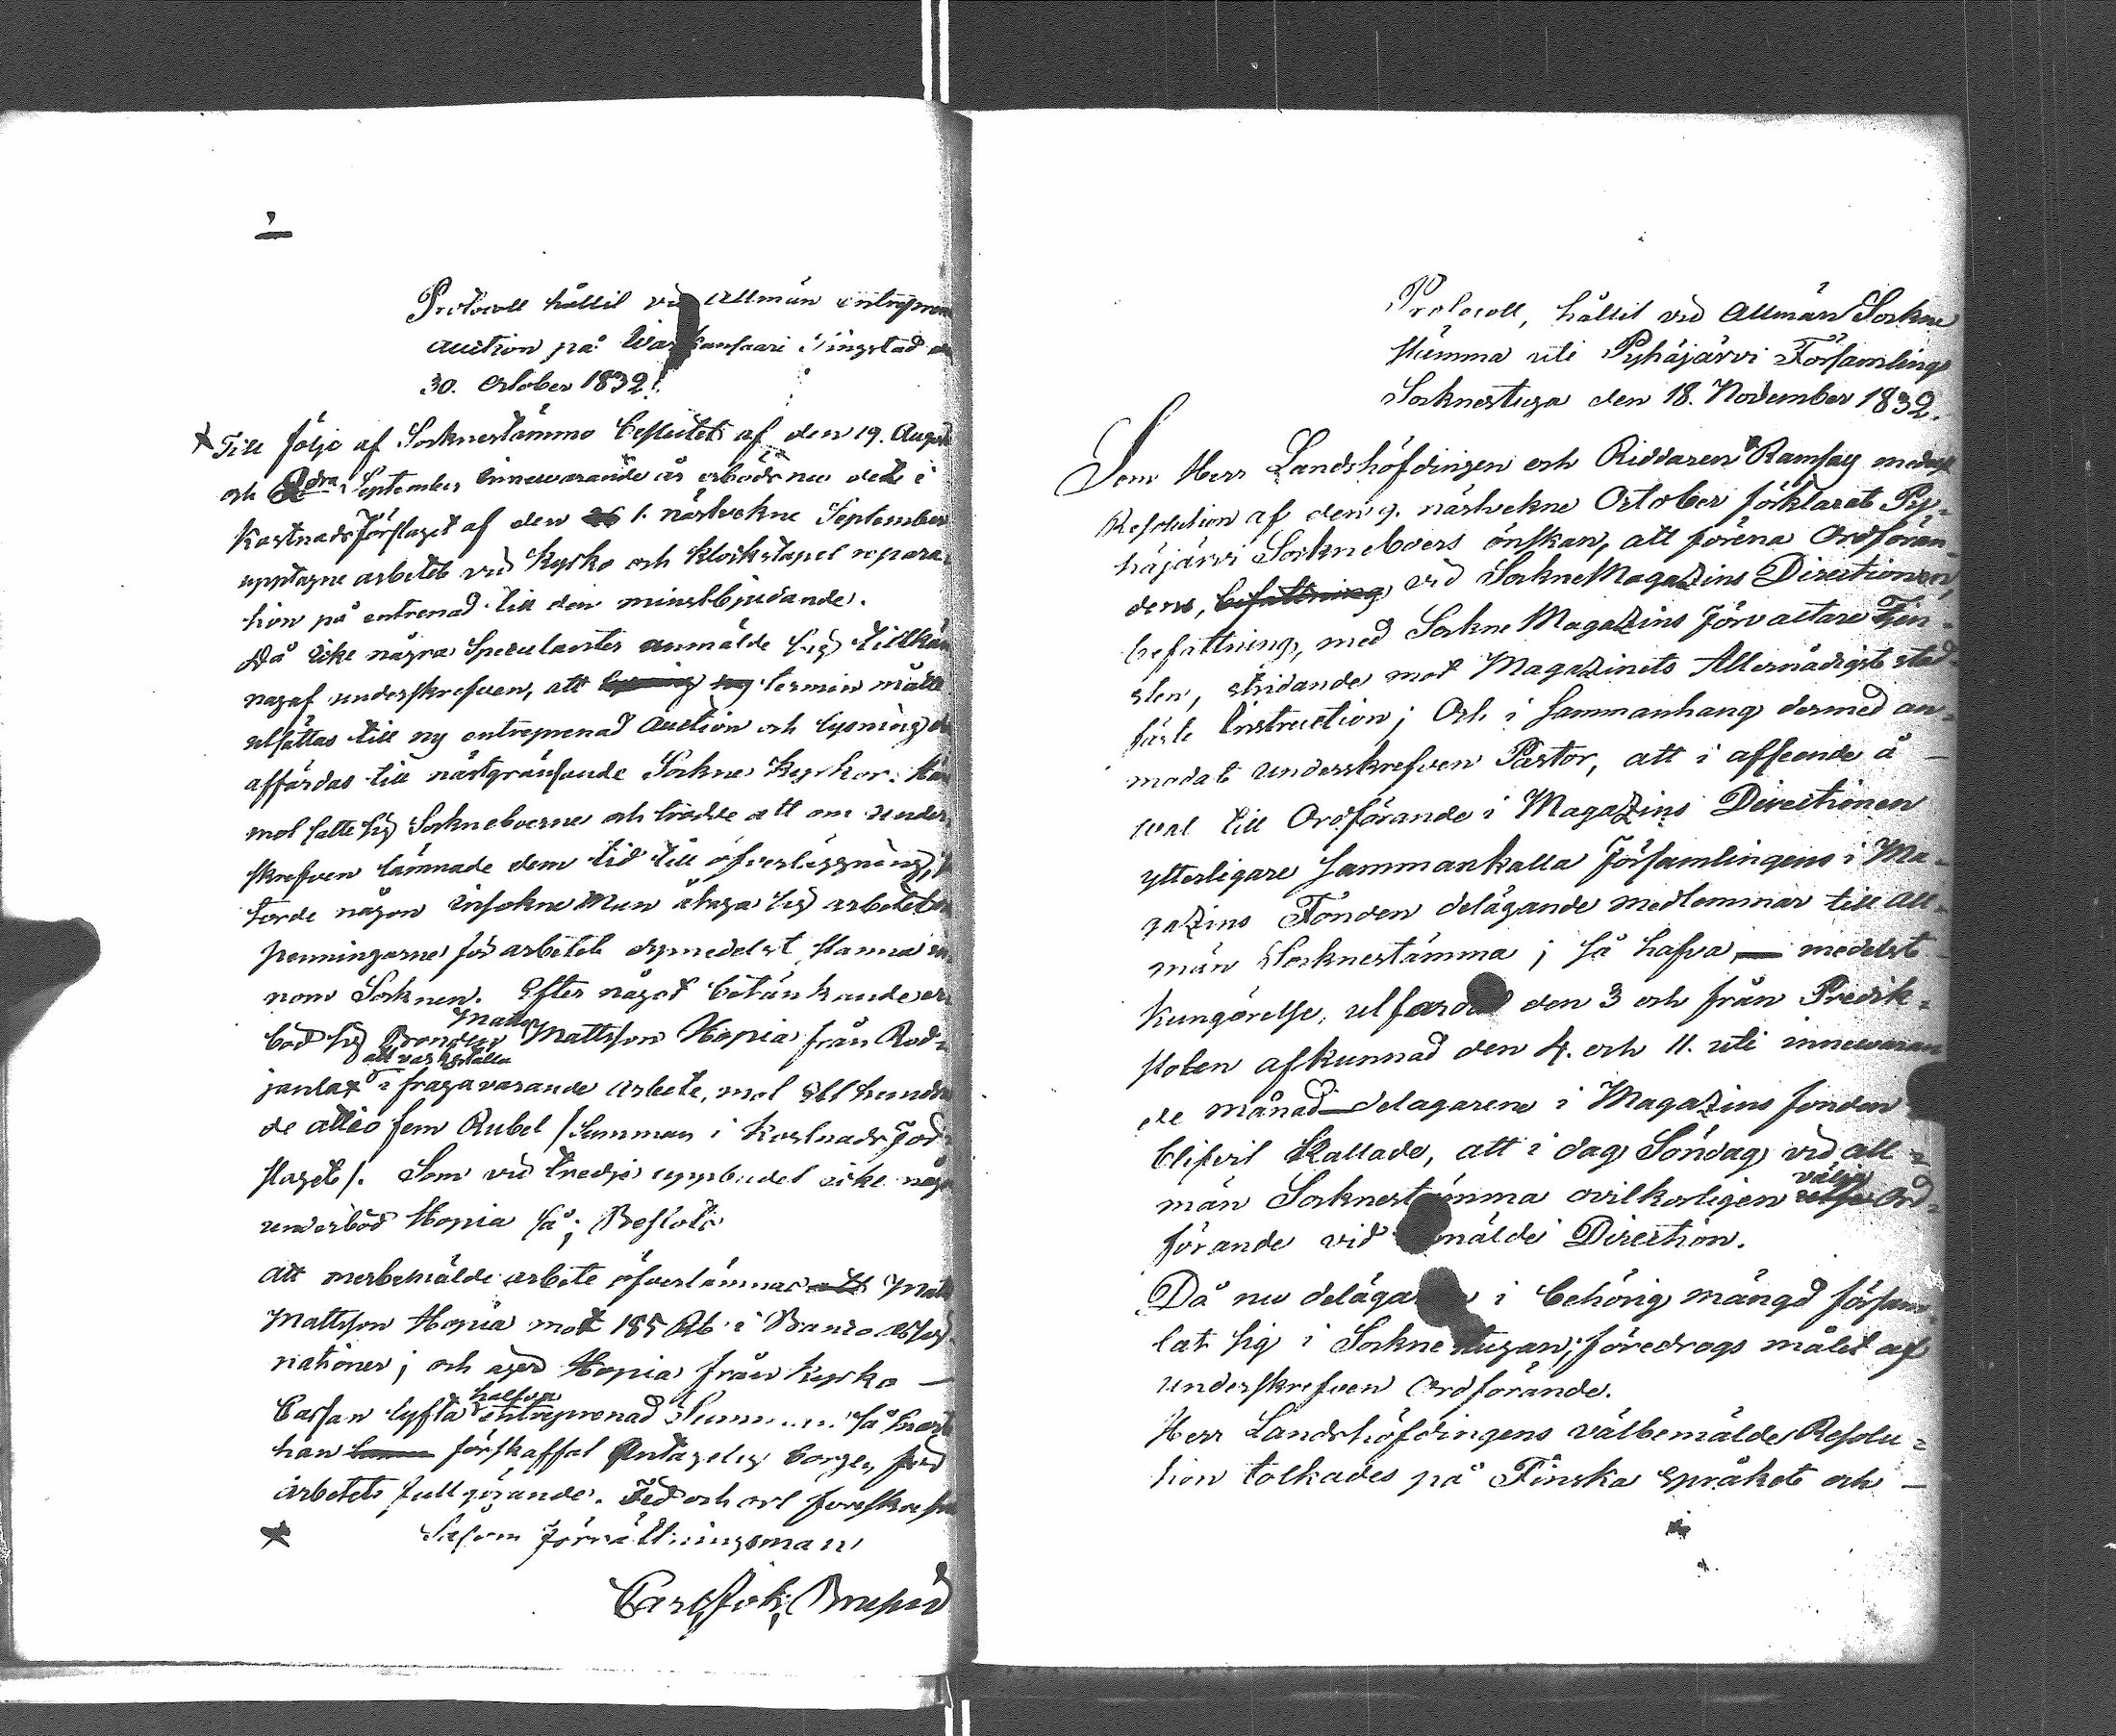 Protocoll hållit vid Allmän entrepren
auction på Warkansaari Tingstad
30. October 1832.
Till följe af Socknestämmo beslutet af den 19. Augusti
och 2dra September innewarande år erböds nu det i
Kostnads Förslaget af den 1. nästvekne September
upptagne arbetet vid Kyrko och Klockstapel repara-
tion på entrenad till den minstbjudande.
Då icke några Speculanter anmälde sig tillkän
nagaf underskrefven, att termin måtte
utsättas till ny entreprenad auction och lysning
affärdas till nästgränsande Sockne Kyrkor.
mot satte sig Sockneboerne och trodde att om under
skrefven lämnade dem tid till öfverläggning,
torde någon insokne Man åtaga sig arbetet
penningarne för arbetet dymedelst stanna in
nom Socknen. Efter något betänkande er
böd sig Bonden Matts Mattsson Hopia från Rod-
janlax att värkställa i fragavarande arbete, mot Ett hundra
de attio fem Rubel /Summan i Kostnads För
slaget/. Som vid tredje uppbudet icke någo
underböd Hopia så; Beslöts
att merbemälde arbete öfverlämnas Matts
Mattsson Hopia mot 185 Rb i Banco Assig-
nationer; och äger Hopia från Kyrko
Cassan lyfta halfva entreprenad Summan så snart
han förskaffat Antagelig borgen för
arbetets fullgörande. Tid och ort föreskrefne
Såsom Förrättningsman
Protocoll, hållit vid Allmän Sockne
stämma uti Pyhäjärvi Församlings
Socknestuga den 18. November 1832.
Som Herr Landshöfdingen och Riddaren Ramsay medelst
Resolution af den 9. nästvekne October förklarat Py-
häjärvi Socknboers önskan, att förena Ordföran-
dens, befattning vid SockneMagazins Directionen,
befattning, med Sockne Magazins Förvaltare Tjen-
sten, stridande mot Magazinets Allernådigst stad-
fäste Instruction; Och i sammanhang dermed an-
modat Underskrefven Pastor, att i afseende å
val till Ordförande i Magazins Directionen
ytterligare sammankalla Församlingens i Ma-
gazins Fonden delägande medlemmar till all-
män Socknestämma; så hafva — medelst
Kungörelse, utfärdad den 3 och från Predik-
stolen afkunnad den 4. och 11. uti innewaran
de månad — delagarene i Magazins fonden
blifvit Kallade, att i dag Söndag vid all-
män Socknestämma ovilkorligen välja Ord-
förande vid bemälde Direction.
Då nu delägarene i behörig mängd försam-
lat sig i Socknestugan; föredrogs målet af
underskrefven Ordförande.
Herr Landshöfdingens välbemälde Resolu-
tion tolkades på Finska språket och —